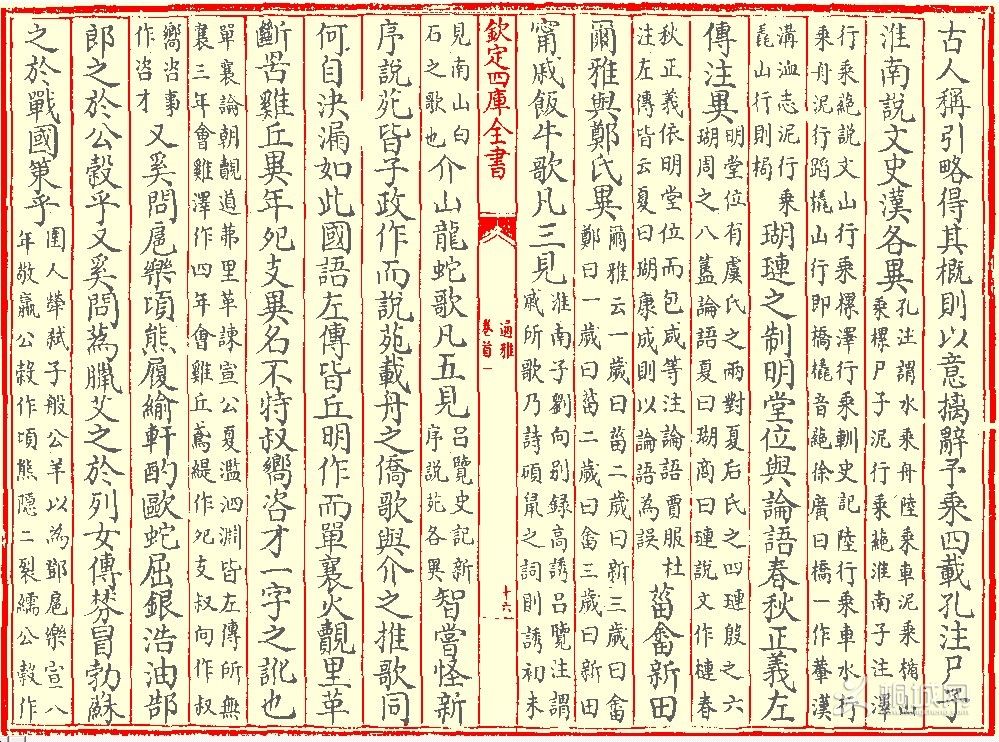 古人稱引略得其概則以意摛辭予乘四載孔注尸子
淮南說文史漢各異
孔注謂水乘舟陸乘車泥乘楯山
乘樏尸子泥行乘蕝淮南子注澤
行乘蕝說文山行乘樏澤行乘軔史記陸行乘車水行
乘舟泥行蹈撬山行即橋撬音蕝徐廣曰橋一作輂漢
溝洫志泥行乘
毳山行則梮
瑚璉之制明堂位與論語春秋正義左
傳注異
明堂位有虞氏之兩對夏后氏之四璉殷之六
瑚周之八簋論語夏曰瑚商曰璉說文作槤春
秋正義依明堂位而包咸等注論語賈服杜
注左傳皆云夏曰瑚康成則以論語為誤
菑畬新田
爾雅與鄭氏異
爾雅云一歲曰菑二歲曰新三歲曰畬
鄭曰一歲曰菑二歲曰畬三歲曰新田
甯戚飯牛歌凡三見
淮南子劉向別録高誘呂覽注謂
戚所歌乃詩碩鼠之詞則誘初未
欽定四庫全書
通雅
卷首一
十六
見南山白
石之歌也
介山龍蛇歌凡五見
呂覽史記新
序說苑各異
智嘗怪新
序說苑皆子政作而說苑載舟之僑歌與介之推歌同
何自決漏如此國語左傳皆丘明作而單襄火覿里革
斷罟雞丘異年夗支異名不特叔嚮咨才一字之訛也
單襄論朝覿道茀里革諫宣公夏濫泗淵皆左傳所無
襄三年會雞澤作四年會雞丘鳶緹作夗支叔向作叔
嚮咨事
作咨才
又奚問扈樂頃熊履緰軒酌歐蛇屈銀浩油郚
郎之於公穀乎又奚問蒍臘艾之於列女傳棼冒勃蘇
之於戰國策乎
圉人犖弒子般公羊以為鄧扈樂宣八
年敬嬴公穀作頃熊隱二裂繻公穀作